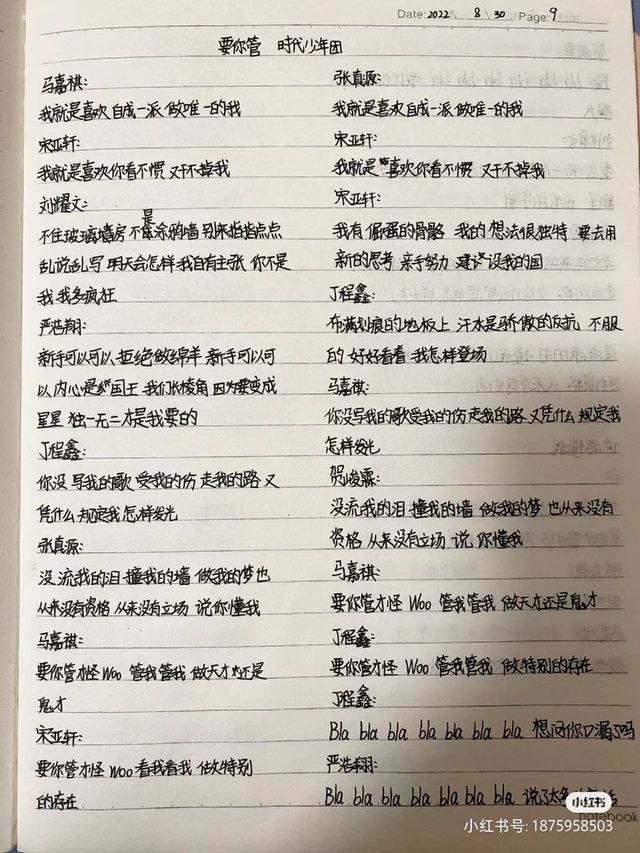 Date: 2022 8 / 30 Page: 9
要你管 时代少年团
马嘉祺:
我就是喜欢自成一派 做唯一的我
宋亚轩:
我就是喜欢你看不惯 又干不掉我
刘耀文:
不住玻璃墙房 不是涂鸦墙 别来指指点点
乱说乱写 明天会怎样 我自有主张 你不是
我 我多疯狂
严浩翔:
新手可以可以 拒绝做绵羊 新手可以可
以 内心是国王 我们长棱角 因为要变成
星星 独一无二才是我要的
丁程鑫:
你没写我的歌 受我的伤 走我的路 又
凭什么 规定我怎样发光
张真源:
没流我的泪 撞我的墙 做我的梦 也
从来没有资格 从来没有立场 说你懂我
马嘉祺:
要你管才怪 Woo 管我管我 做天才还是
鬼才
宋亚轩:
要你管才怪 Woo 看我看我 做特别
的存在
张真源:
我就是喜欢自成一派 做唯一的我
宋亚轩:
我就是喜欢你看不惯 又干不掉我
宋亚轩:
我有倔强的骨骼 我的想法很独特 要去用
新的思考 亲手努力 建设我的国
丁程鑫:
布满划痕的地板上 汗水是骄傲的反抗 不服
的 好好看着 我怎样登场
马嘉祺:
你没写我的歌 受我的伤 走我的路 又凭什么 规定我
怎样发光
贺峻霖:
没流我的泪 撞我的墙 做我的梦 也从来没有
资格 从来没有立场 说你懂我
马嘉祺:
要你管才怪 Woo 管我管我 做天才还是鬼才
丁程鑫:
要你管才怪 Woo 管我管我 做特别的存在
丁程鑫:
Bla bla bla bla bla bla bla 想问你口渴了吗
严浩翔:
Bla bla bla bla bla bla bla 说了太多
小红书
notebook
小红书号: 1875958503